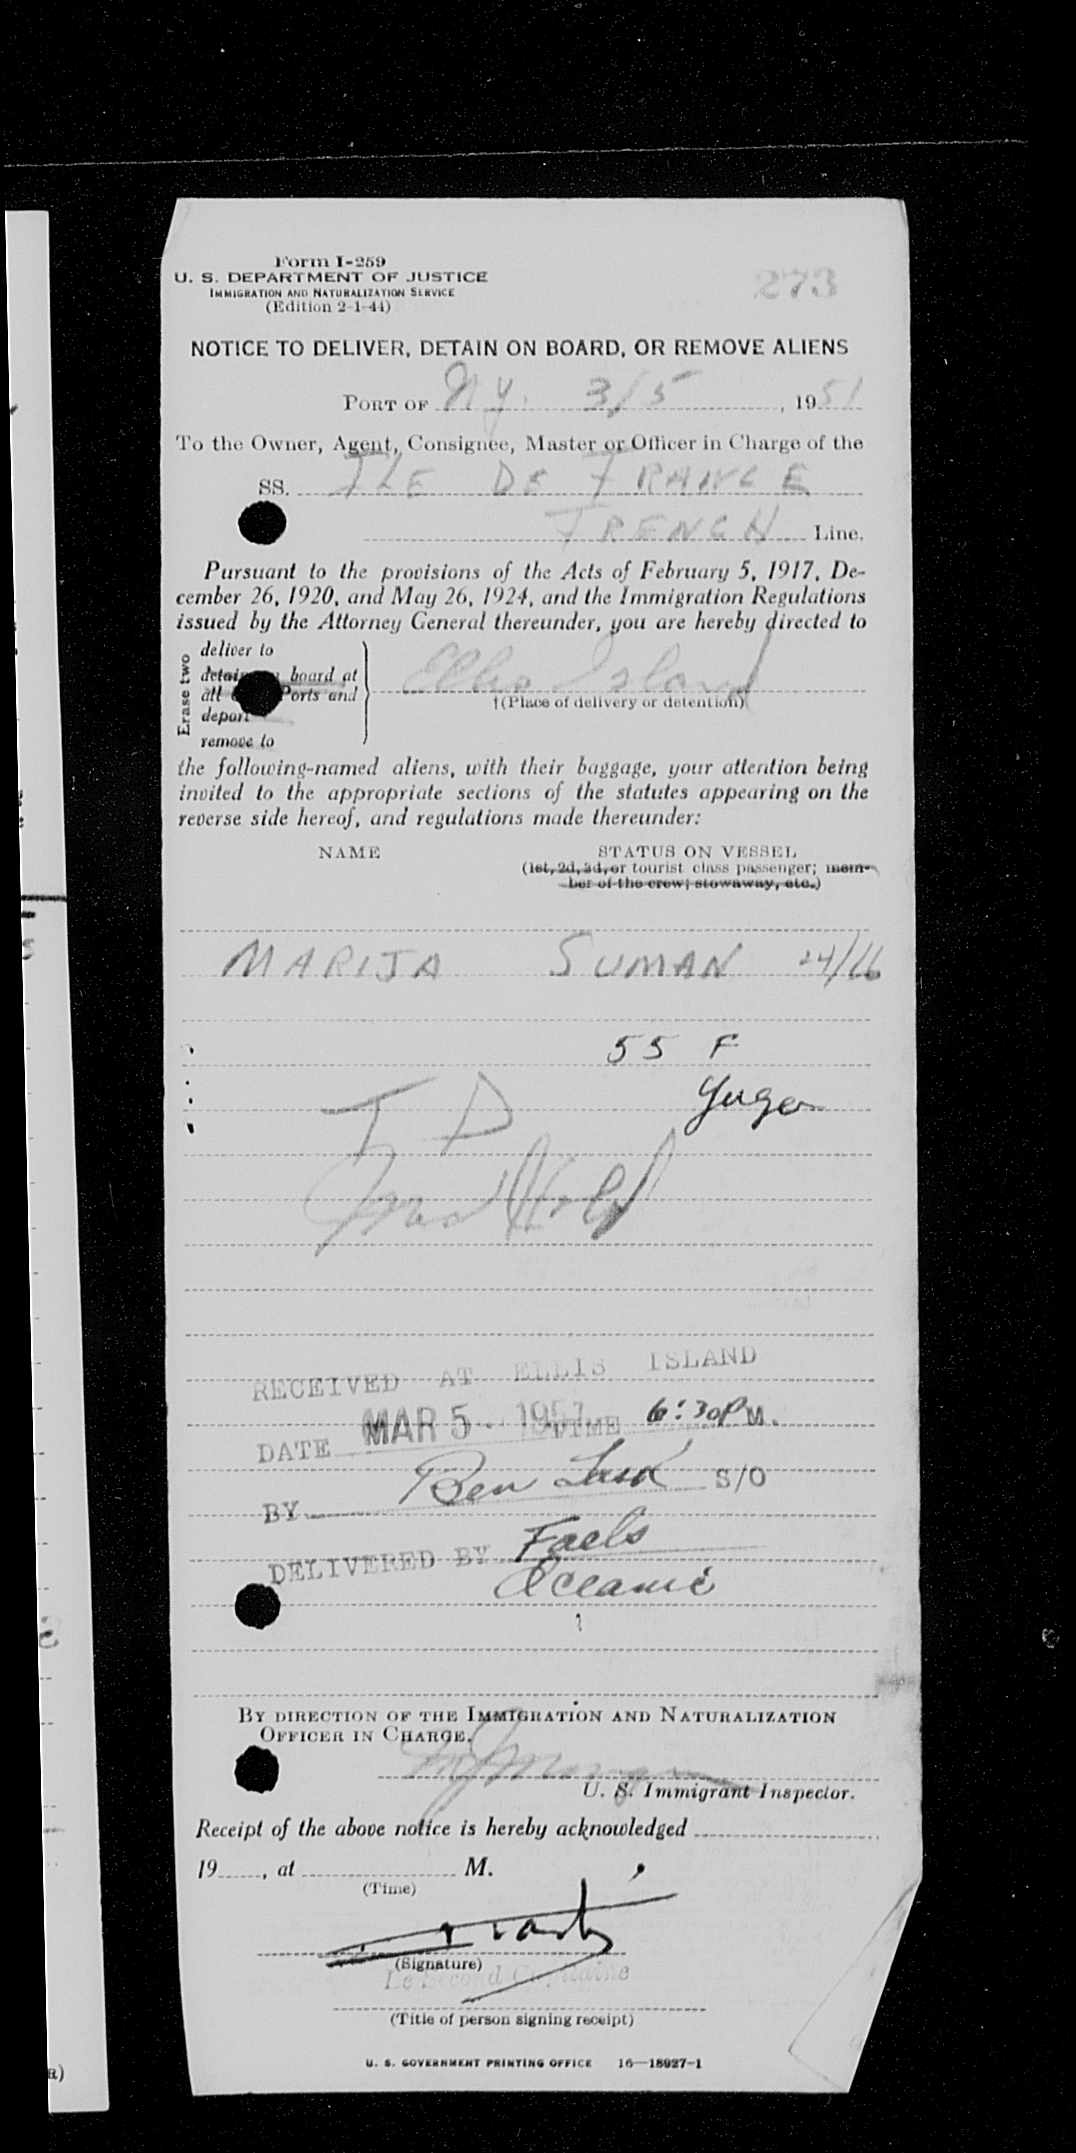 Form I-259
U. S. DEPARTMENT OF JUSTICE
IMMIGRATION AND NATURALIZATION SERVICE
(Edition 2-1-44)
273
NOTICE TO DELIVER, DETAIN ON BOARD, OR REMOVE ALIENS
PORT OF N y. 3/5, 1951
To the Owner, Agent, Consignee, Master or Officer in Charge of the
SS. ILE DE FRANCE
FRENCH Line.
Pursuant to the provisions of the Acts of February 5, 1917, De-
cember 26, 1920, and May 26, 1924, and the Immigration Regulations
issued by the Attorney General thereunder, you are hereby directed to
Erase two
deliver to
board at
all Ports and
remove to
Ellis Island
†(Place of delivery or detention)
the following-named aliens, with their baggage, your attention being
invited to the appropriate sections of the statutes appearing on the
reverse side hereof, and regulations made thereunder:
NAME STATUS ON VESSEL
(1st, 2d, 3d, or tourist class passenger; mem-
ber of the crew; stowaway, etc.)
MARIJA SUMAN 24/26
55 F
Yugo
T D
Hold
RECEIVED AT ELLIS ISLAND
DATE MAR 5 - 1951 TIME 6:30 P M.
BY Ben S/O
DELIVERED BY
Oceanic
BY DIRECTION OF THE IMMIGRATION AND NATURALIZATION
OFFICER IN CHARGE.
U. S. Immigrant Inspector.
Receipt of the above notice is hereby acknowledged
19, at M.
(Time)
(Signature)
Le Second Capitaine
(Title of person signing receipt)
U. S. GOVERNMENT PRINTING OFFICE 16—18927-1